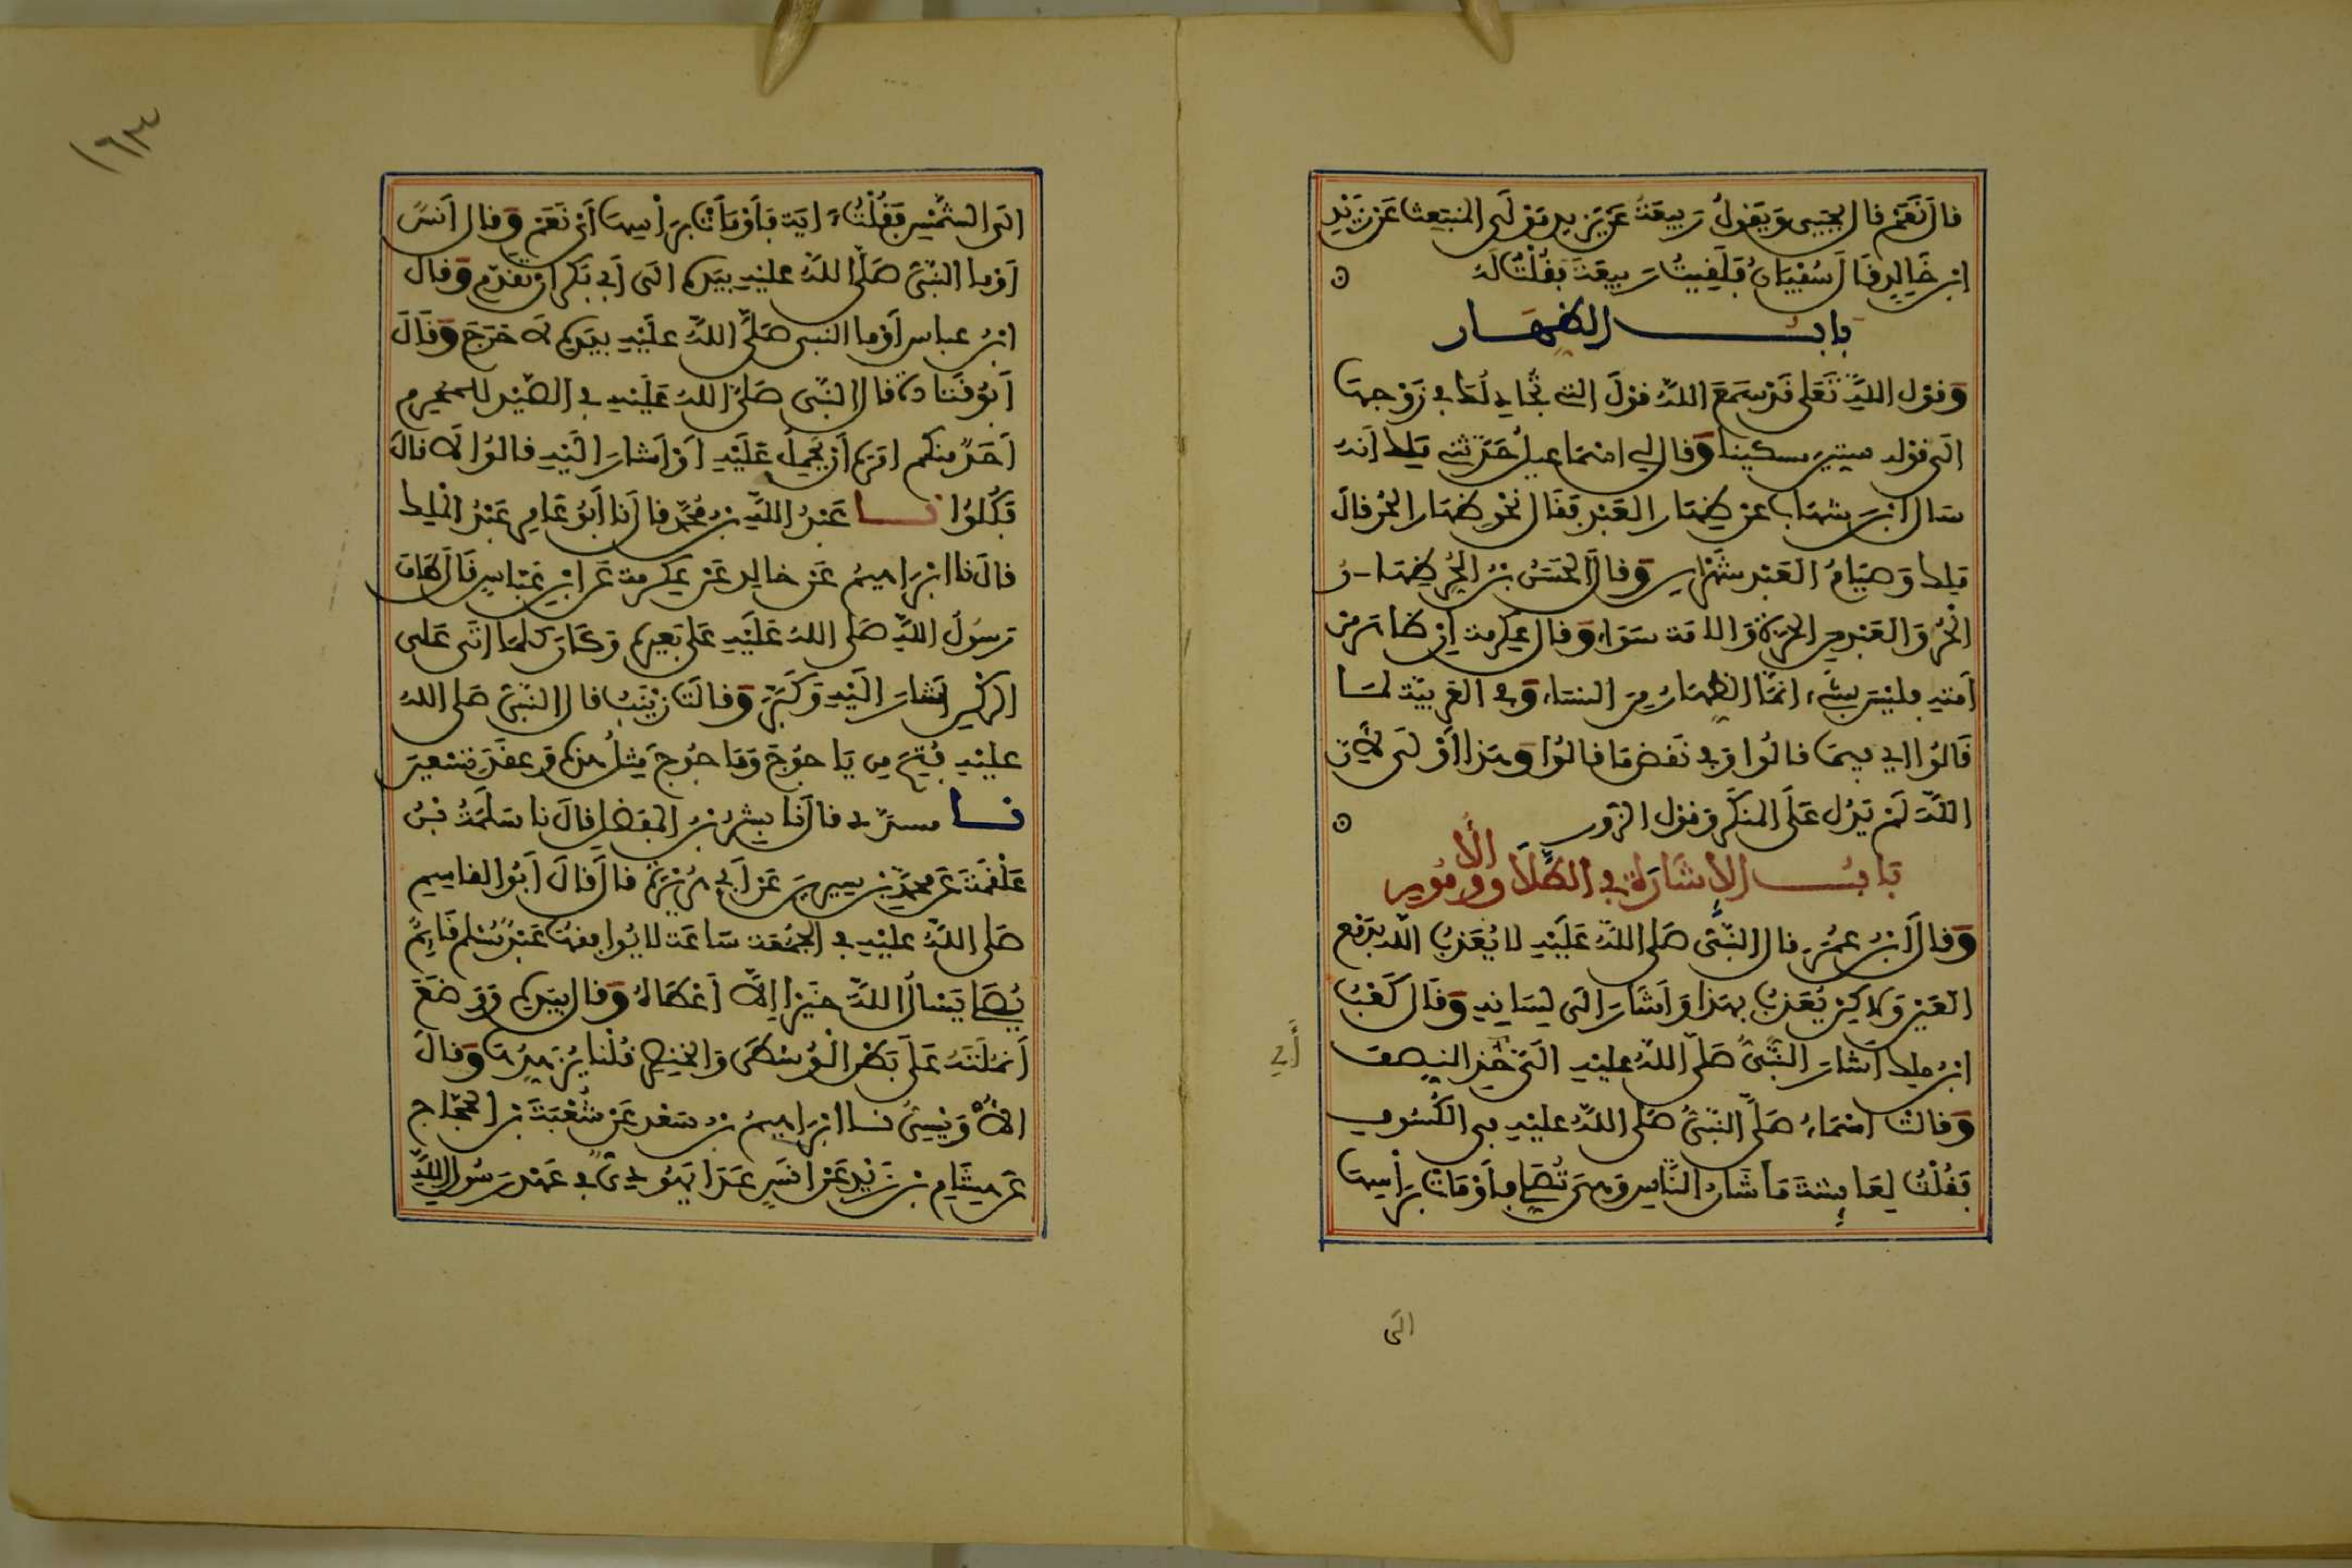 قال نعم قال يحيى ويقول ربيعة عن يزيد مولى المنبعث عن زيد
ابن خالد قال سفيان فلقيت ربيعة فقلت له
باب الظهار
وقول الله تعلى قد سمع الله قول التي تجادلك في زوجها
الى قوله ستين مسكينا وقال لي اسماعيل حدثني ملك انه
سال ابن شهاب عن ظهار العبد فقال نحو ظهار الحر قال
ملك وصيام العبد شهران وقال الحسن بن الحر ظهار
الحر والعبد من الحرة والامة سواء وقال عكرمة ان ظاهر من
امته فليس بشيء انما الظهار من النساء وفي العربية لما
قالوا اي فيما قالوا وفي نقض ما قالوا وهذا اولى لان
الله لم يدل على المنكر وقول الزور
باب الاشارة في الطلاق والامور
وقال ابن عمر قال النبي صلى الله عليه لا يعذب الله بدمع
العين ولاكن يعذب بهذا واشار الى لسانه وقال كعب
ابن ملك اشار النبي صلى الله عليه الي خذ النصف
وقالت اسماء صلى النبي صلى الله عليه في الكسوف
فقلت لعائشة ما شان الناس وهي تصلي فاومات براسها
الى
الى الشمس فقلت ءاية فاومات براسها اي نعم وقال انس
اوما النبي صلى الله عليه بيده الى ابي بكر ان تقدم وقال
ابن عباس اوما النبي صلى الله عليه بيده لا حرج وقال
ابو قتادة قال النبي صلى الله عليه في الصيد للمحرم
احد منكم امره ان يحمل عليه او اشار اليه قالوا لا قال
فكلوا نا عبد الله بن محمد قال نا ابو عامر عبد الملك
قال نا ابراهيم عن خالد عن عكرمة عن ابن عباس قال طاف
رسول الله صلى الله عليه على بعيره وكان كلما اتى على
الركن اشار اليه وكبر وقالت زينب قال النبي صلى الله
عليه فتح من ياجوج وماجوج مثل هذه وعقد تسعين
نا مسدد قال نا بشر بن المفضل قال نا سلمة بن
علقمة عن محمد بن سيرين عن ابي هريرة قال قال ابو القاسم
صلى الله عليه في الجمعة ساعة لا يوافقها عبد مسلم قائم
يصلي يسال الله خيرا الا اعطاه وقال بيده ووضع
انملته على بطن الوسطى والخنصر قلنا يزهدها وقال
الاويسي نا ابراهيم بن سعد عن شعبة بن الحجاج
عن هشام بن زيد عن انس عدا يهودي في عهد رسول الله